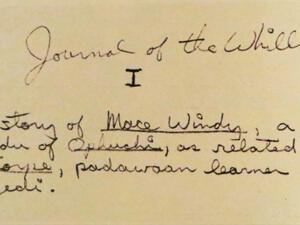 Journal of the Whill
I
story of Mace Windy, a
du of Ophuchi, as related
padawaan learner
edi.